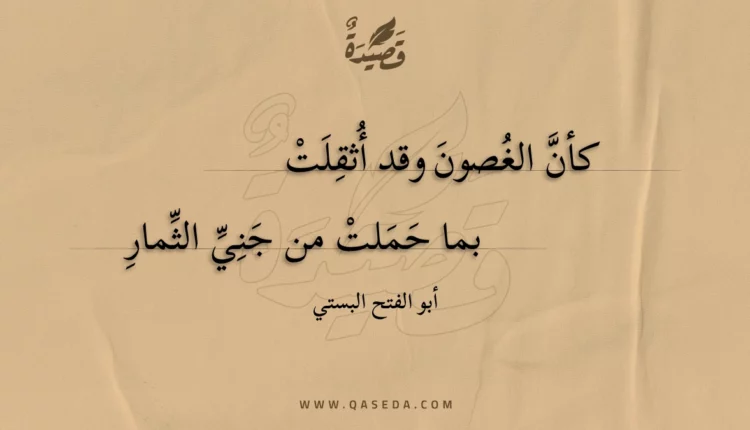 قَصِيْدَةٌ
كأنَّ الغُصونَ وقد أُثقِلَتْ
بما حَمَلتْ من جَنِيِّ الثِّمارِ
أبو الفتح البستي
WWW.QASEDA.COM